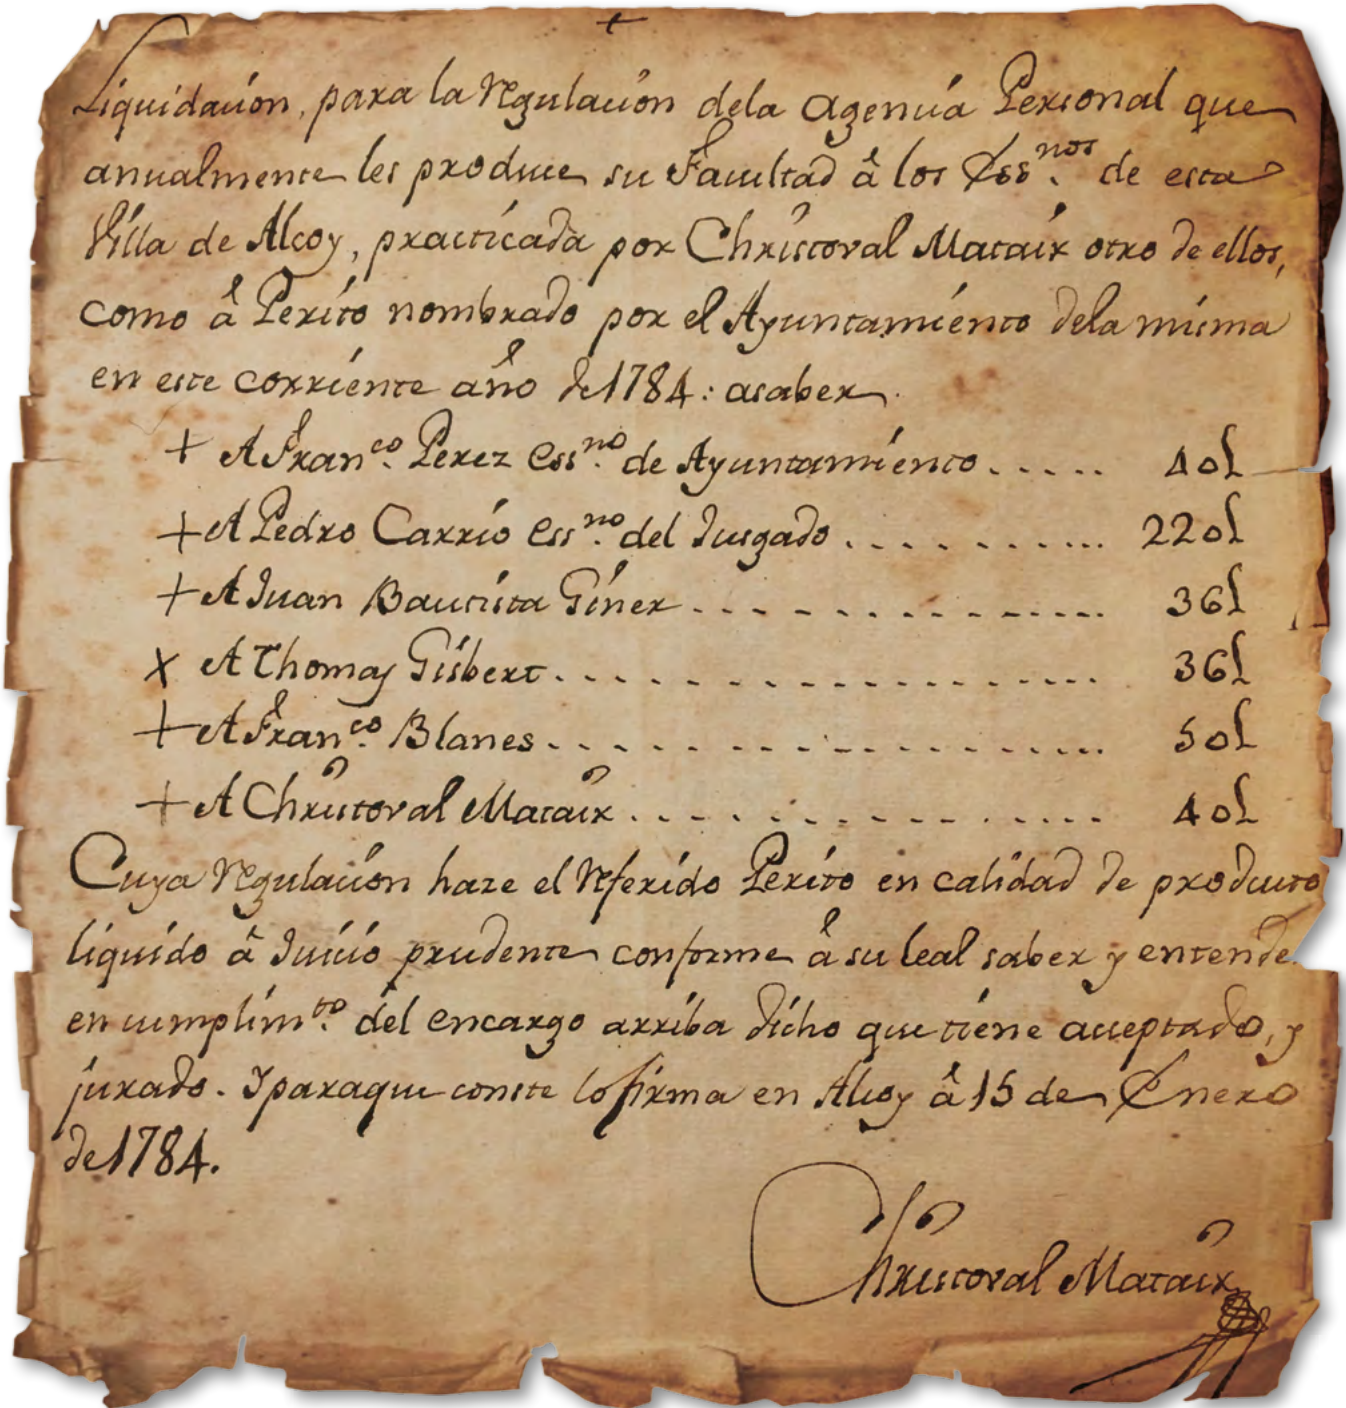 +
Liquidación, para la regulación dela Agencia Personal que
anualmente les produce su Facultad â los Ess.nos de esta
Villa de Alcoy, practicada por Christoval Mataix otro de ellos,
como â Perito nombrado por el Ayuntamiento dela misma
en este corriente año de 1784: asaber.
+ A Fran.co Perez Ess.no de Ayuntamiento..... 40L
+ A Pedro Carrio Ess.no del Jusgado........... 220L
+ A Juan Bautista Giner............... 36L
x A Thomas Gisbert.................. 36L
+ A Fran.co Blanes................. 50L
+ A Christoval Mataix.............. 40L
Cuya regulación haze el referido Perito en calidad de producto
liquido â Juicio prudente conforme â su leal saber y entender
en cumplim.to del encargo arriba dicho que tiene acceptado, y
jurado. Y paraque conste lo firma en Alcoy â 15 de Enero
de 1784.
Christoval Mataix